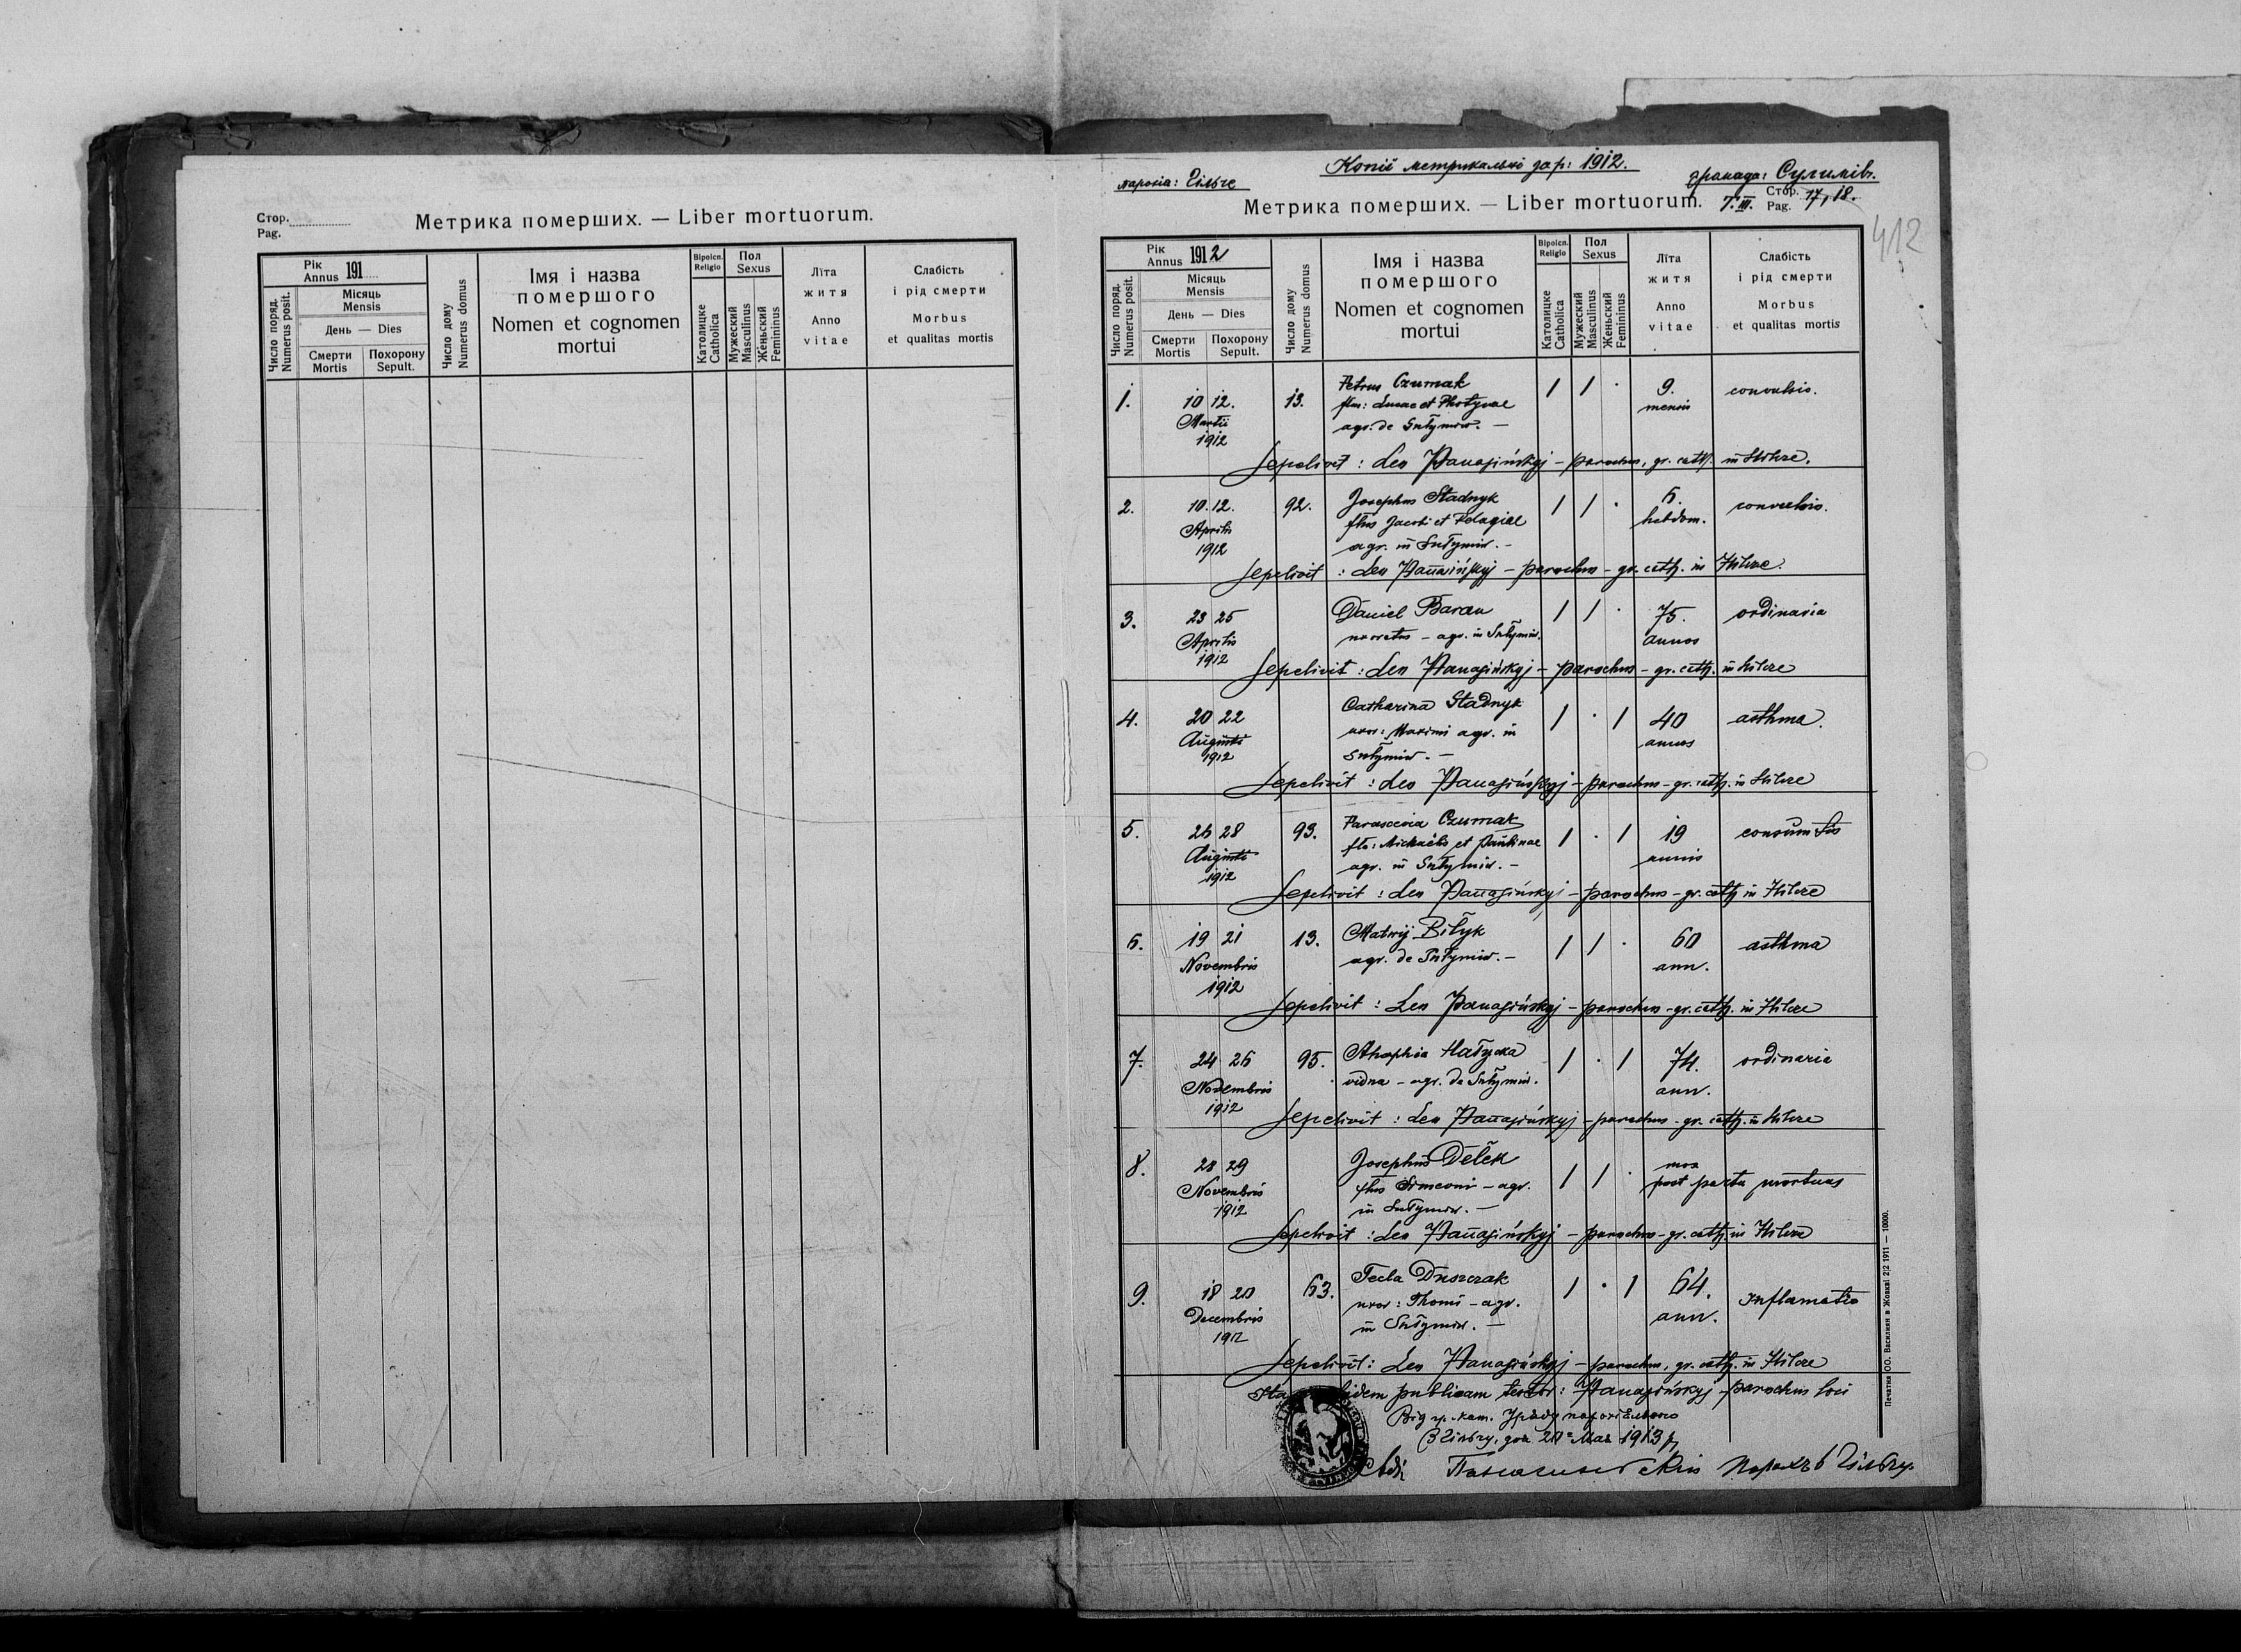 Стор.
Pag.
Метрика померших. — Liber mortuorum.
Число поряд.
Numerus posit.
Рік
Annus 191
Місяць
Mensis
День — Dies
Смерти
Mortis
Похорону
Sepult.
Число дому
Numerus domus
Імя і назва
помершого
Nomen et cognomen
mortui
Віроісп.
Religio
Католицке
Catholica
Пол
Sexus
Мужеский
Masculinus
Женьский
Femininus
Лїта
житя
Anno
vitae
Слабість
і рід смерти
Morbus
et qualitas mortis
Копії метрикальні за р: 1912.
парохія: Гільче
громада: Сулимів.
Метрика померших. — Liber mortuorum.
T. III.
Стор.
Pag. 17, 18.
412
Число поряд.
Numerus posit.
Рік
Annus 1912
Місяць
Mensis
День — Dies
Смерти
Mortis
Похорону
Sepult.
Число дому
Numerus domus
Імя і назва
помершого
Nomen et cognomen
mortui
Віроісп.
Religio
Католицке
Catholica
Пол
Sexus
Мужеский
Masculinus
Женьский
Femininus
Лїта
житя
Anno
vitae
Слабість
і рід смерти
Morbus
et qualitas mortis
1. 10 12. 13. Petrus Czumak 1 1 · 9. convulsio.
Martii flius: Lucae et Photynae mensis
1912 agr. de Sułymiw. —
Sepelivit: Leo Panasińskyj — parochus, gr. cath. in Hilcze.
2. 10. 12. 92. Josephus Stadnyk 1 1 · 5. convulsio.
Aprilis flius Jacobi et Pelagiae hebdom.
1912 agr. in Sułymiw. —
Sepelivit: Leo Panasińskyj — parochus — gr. cath. in Hilcze.
3. 23 25 Daniel Baran 1 1 · 75. ordinaria
Aprilis uxoratus — agr. in Sułymiw. annos
1912
Sepelivit: Leo Panasińskyj — parochus — gr. cath. in Hilcze
4. 20 22 Catharina Stadnyk 1 · 1 40 asthma.
Augusti uxor: Maximi agr. in annos
1912 Sułymiw. —
Sepelivit: Leo Panasińskyj — parochus — gr. cath. in Hilcze
5. 26 28 93. Parascevia Czumak 1 · 1 19 consumtio
Augusti flia: Michaelis et Paulinae annis
1912 agr. in Sułymiw. —
Sepelivit: Leo Panasińskyj — parochus — gr. cath. in Hilcze
6. 19 21 13. Matwij Biłyk 1 1 · 60 asthma
Novembris agr. de Sułymiw. — ann.
1912
Sepelivit: Leo Panasińskyj — parochus — gr. cath. in Hilcze
7. 24 26 95. Ahaphia Hałycka 1 · 1 74. ordinaria
Novembris vidua — agr. de Sułymiw. ann.
1912
Sepelivit: Leo Panasińskyj — parochus — gr. cath. in Hilcze
8. 28 29 Josephus 1 1 · mox
Novembris flius Simeoni — agr. post partu mortuus
1912 in Sułymiw. —
Sepelivit: Leo Panasińskyj — parochus — gr. cath. in Hilcze
9. 18 20 63. Tecla Duszczak 1 · 1 64. Inflamatio
Decembris uxor: Thomi — agr. ann.
1912 in Sułymiw. —
Sepelivit: Leo Panasińskyj — parochus, gr. cath. in Hilcze
fidem publicam testor: Panasińskyj — parochus loci
Від гр. кат. Уряду парохіяльного
В Гільчу, дня 20 Мая 1913 р.
Панасиньскій парох в Гільчу.
Печатня ОО. Василиян в Жовкві 2|2 1911 — 10000.